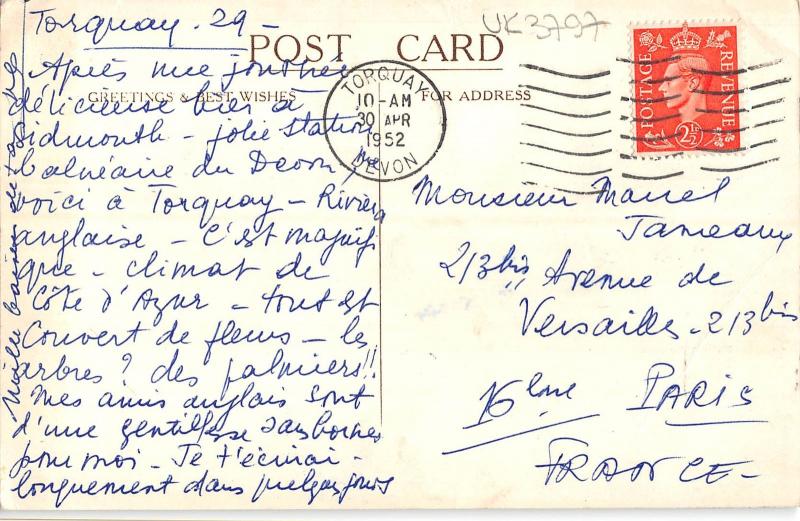 Torquay. 29 -
UK3797
POST CARD
GREETINGS & BEST WISHES
FOR ADDRESS
TORQUAY
10-AM
30 APR
1952
DEVON
POSTAGE REVENUE
2½D
Après une journée
délicieuse hier à
Sidmouth - jolie station
balnéaire du Devon, me
voici à Torquay - Riviera
anglaise - C'est magnifi
que - climat de
Côte d'Azur - tout est
couvert de fleurs - les
arbres? des palmiers!!
Mes amis anglais sont
d'une gentillesse sans bornes
pour moi - Je t'écrirai
longuement dans quelques jours
Mille baisers de ta
Monsieur Marcel
Jameaux
213bis Avenue de
Versailles - 213bis
16ème PARIS
FRANCE -